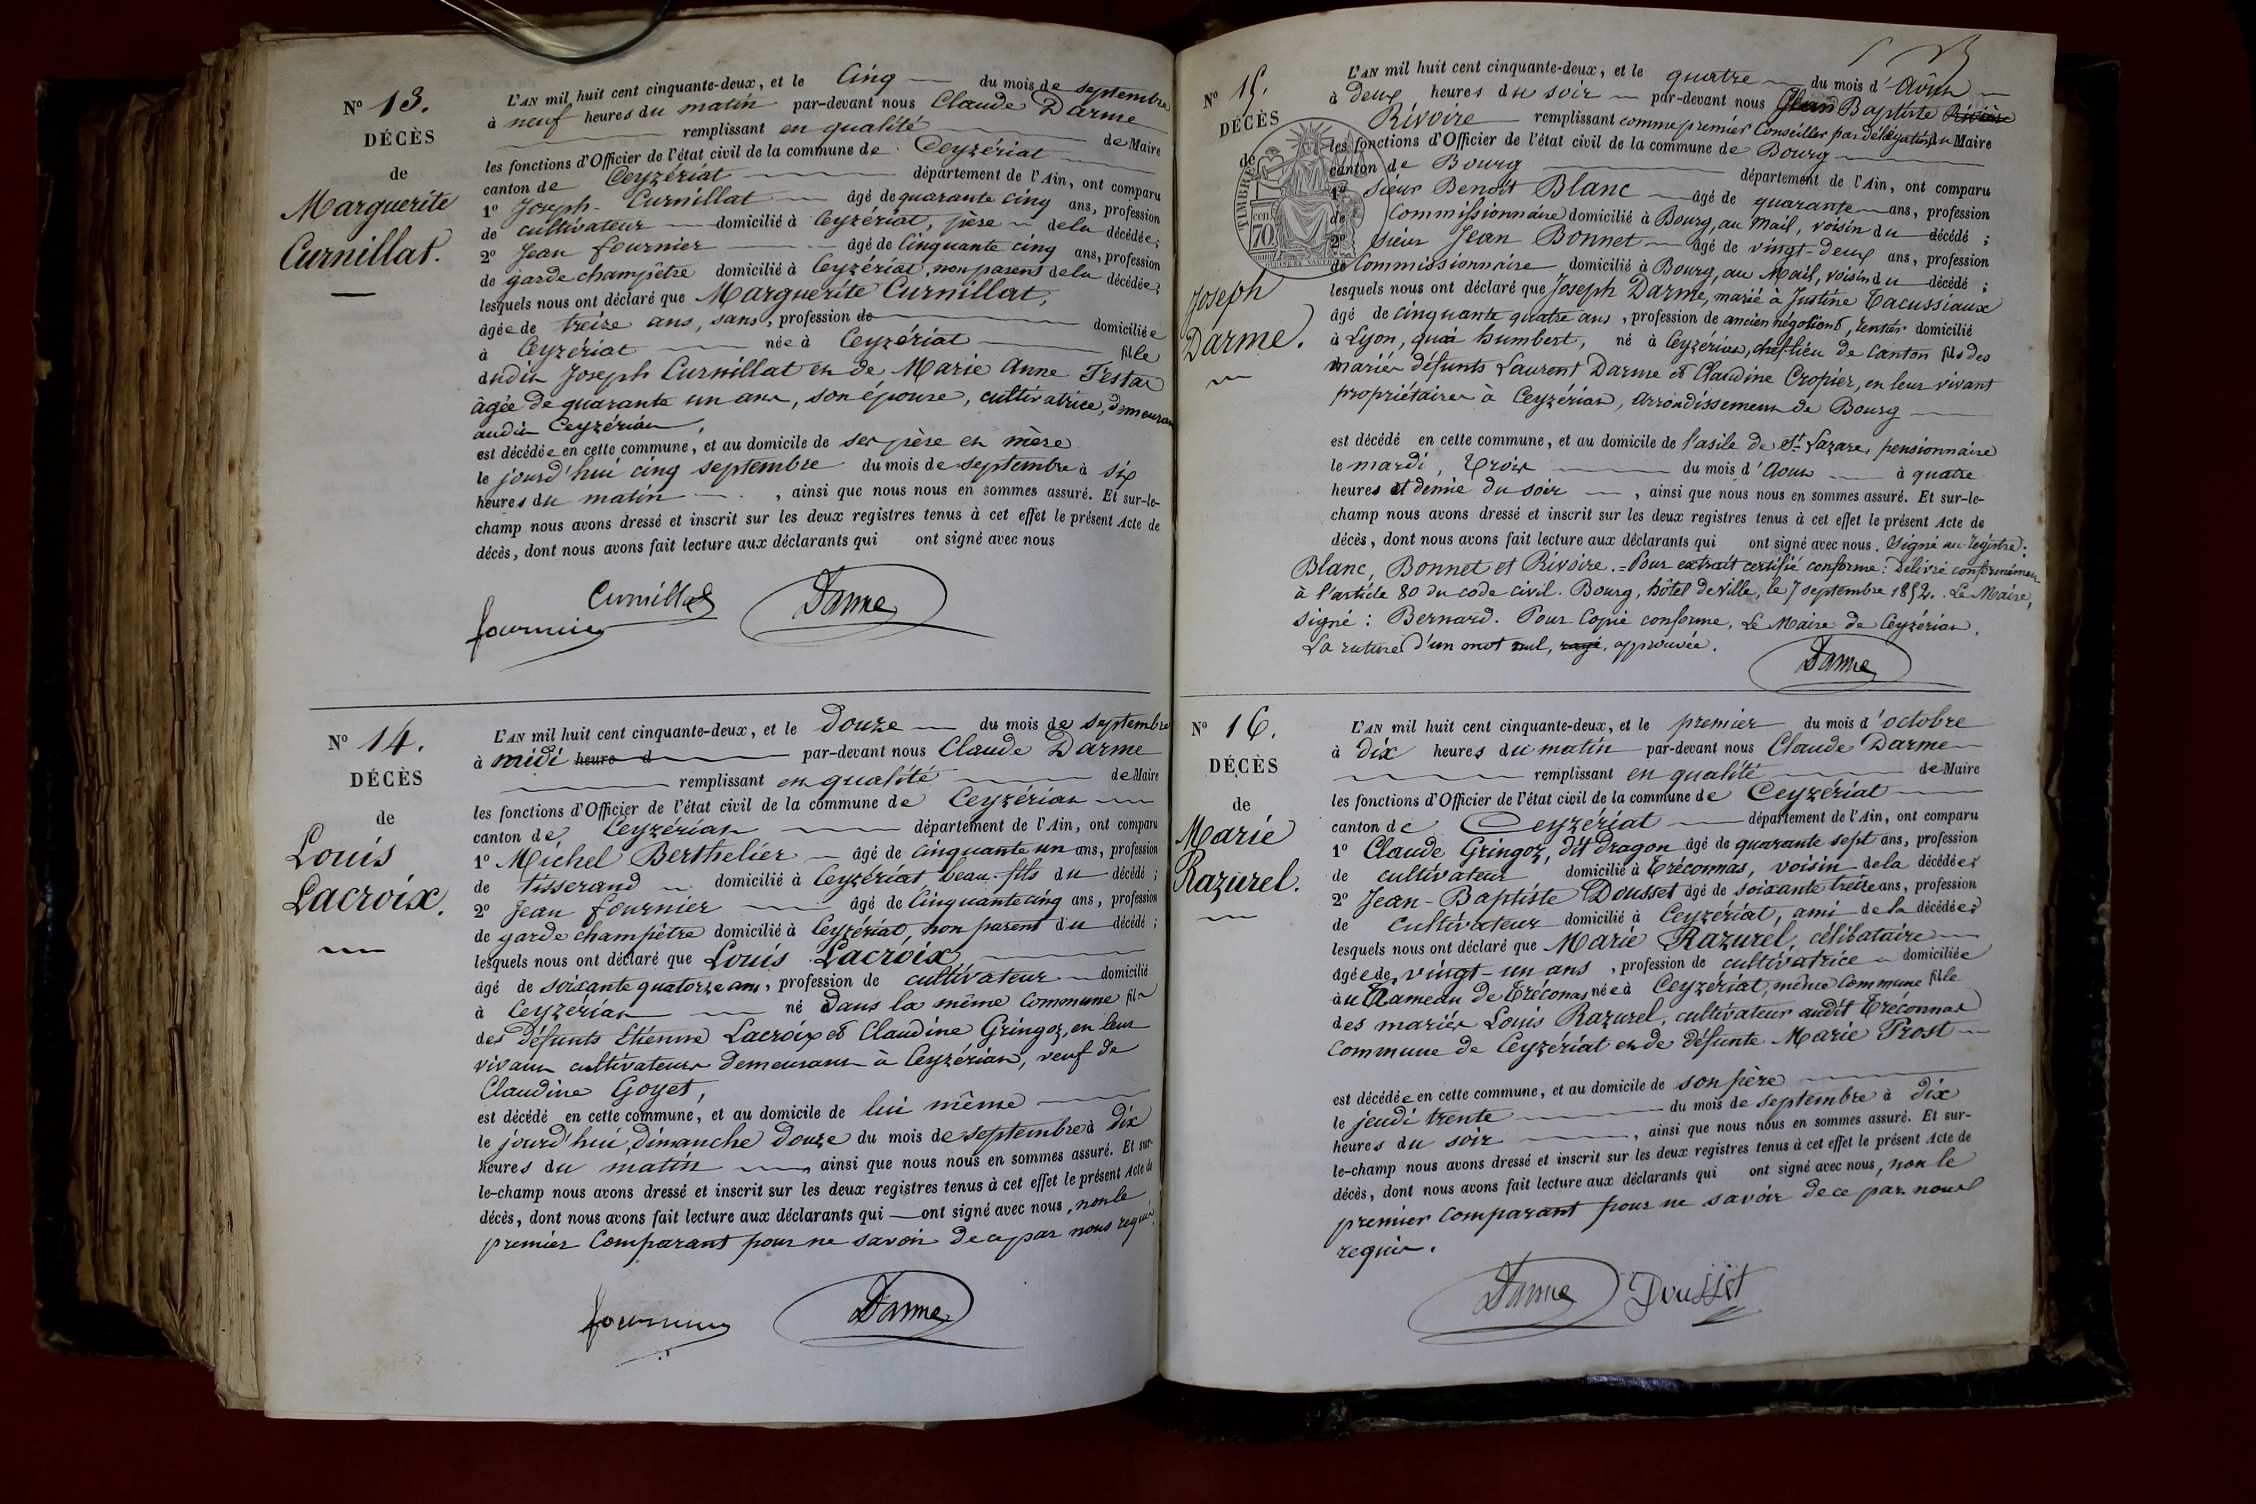 N° 13.
DÉCÈS
de
Marguerite
Curnillat.
L'AN mil huit cent cinquante-deux, et le Cinq du mois de septembre
à neuf heures du matin par-devant nous Claude Darme
remplissant en qualité de Maire
les fonctions d'Officier de l'état civil de la commune de Ceyzériat
canton de Ceyzériat département de l'Ain, ont comparu
1° Joseph Curnillat âgé de quarante cinq ans, profession
de cultivateur domicilié à Ceyzériat, père de la décédée;
2° Jean fournier âgé de Cinquante cinq ans, profession
de garde champêtre domicilié à Ceyzériat, non parent de la décédée;
lesquels nous ont déclaré que Marguerite Curnillat,
âgée de treize ans, sans, profession de domiciliée
à Ceyzériat née à Ceyzériat fille
dudit Joseph Curnillat et de Marie Anne Testar
âgée de quarante un ans, son épouse, cultivatrice, demeurant
audit Ceyzériat,
est décédée en cette commune, et au domicile de ses père et mère
le jourd'hui cinq septembre du mois de septembre à six
heures du matin, ainsi que nous nous en sommes assuré. Et sur-le-
champ nous avons dressé et inscrit sur les deux registres tenus à cet effet le présent Acte de
décès, dont nous avons fait lecture aux déclarants qui ont signé avec nous
Curnillat
fournier Darme
N° 14.
DÉCÈS
de
Louis
Lacroix.
L'AN mil huit cent cinquante-deux, et le Douze du mois de septembre
à midi heure d par-devant nous Claude Darme
remplissant en qualité de Maire
les fonctions d'Officier de l'état civil de la commune de Ceyzériat
canton de Ceyzériat département de l'Ain, ont comparu
1° Michel Berthelier âgé de cinquante un ans, profession
de tisserand domicilié à Ceyzériat beau-fils du décédé;
2° Jean fournier âgé de Cinquante cinq ans, profession
de garde champêtre domicilié à Ceyzériat, non parent du décédé;
lesquels nous ont déclaré que Louis Lacroix
âgé de soixante quatorze ans, profession de cultivateur domicilié
à Ceyzériat né dans la même commune fils
des défunts Etienne Lacroix et Claudine Gringoz, en leur
vivant cultivateurs demeurant à Ceyzériat, veuf de
Claudine Goyet,
est décédé en cette commune, et au domicile de lui même
le jourd'hui, Dimanche douze du mois de septembre à dix
heures du matin, ainsi que nous nous en sommes assuré. Et sur-
le-champ nous avons dressé et inscrit sur les deux registres tenus à cet effet le présent Acte de
décès, dont nous avons fait lecture aux déclarants qui ont signé avec nous, non le
premier Comparant pour ne savoir de ce par nous requis.
fournier Darme
N° 15.
DÉCÈS
de
TIMBRE
70
Joseph
Darme.
L'AN mil huit cent cinquante-deux, et le quatre du mois d'Août
à deux heures du soir par-devant nous Jean Baptiste Rivoire
Rivoire remplissant comme premier Conseiller par délégation du Maire
les fonctions d'Officier de l'état civil de la commune de Bourg
canton de Bourg département de l'Ain, ont comparu
1° Sieur Benoit Blanc âgé de quarante ans, profession
de Commissionnaire domicilié à Bourg, au Mail, voisin du décédé;
2° sieur Jean Bonnet âgé de vingt-deux ans, profession
de Commissionnaire domicilié à Bourg, au Mail, voisin du décédé;
lesquels nous ont déclaré que Joseph Darme, marié à Justine Tacussiaux
âgé de cinquante quatre ans, profession de ancien négotiant, rentier domicilié
à Lyon, quai humbert, né à Ceyzériat, chef-lieu de Canton fils des
mariés défunts Laurent Darme et Claudine Cropier, en leur vivant
propriétaires à Ceyzériat, arrondissement de Bourg
est décédé en cette commune, et au domicile de l'asile de St Lazare, pensionnaire
le mardi, Trois du mois d'Aout à quatre
heures et demie du soir, ainsi que nous nous en sommes assuré. Et sur-le-
champ nous avons dressé et inscrit sur les deux registres tenus à cet effet le présent Acte de
décès, dont nous avons fait lecture aux déclarants qui ont signé avec nous. Signé au registre:
Blanc, Bonnet et Rivoire. = Pour extrait certifié conforme: Délivré conformément
à l'article 80 du code civil. Bourg, hôtel de Ville, le 7 septembre 1852. Le Maire,
signé: Bernard. Pour Copie conforme, Le Maire de Ceyzériat.
La rature d'un mot nul, rayé, approuvée.
Darme
N° 16.
DÉCÈS
de
Marie
Razurel.
L'AN mil huit cent cinquante-deux, et le premier du mois d'octobre
à dix heures du matin par-devant nous Claude Darme
remplissant en qualité de Maire
les fonctions d'Officier de l'état civil de la commune de Ceyzériat
canton de Ceyzériat département de l'Ain, ont comparu
1° Claude Gringoz, dit dragon âgé de quarante sept ans, profession
de cultivateur domicilié à Tréconnas, voisin de la décédée;
2° Jean-Baptiste Dousset âgé de soixante treize ans, profession
de Cultivateur domicilié à Ceyzériat, ami de la décédée;
lesquels nous ont déclaré que Marie Razurel, célibataire
âgée de vingt-un ans, profession de cultivatrice domiciliée
au Hameau de Tréconas née à Ceyzériat, même Commune fille
des mariés Louis Razurel, cultivateur audit Tréconnas
Commune de Ceyzériat et de défunte Marie Prost
est décédée en cette commune, et au domicile de son père
le jeudi trente du mois de septembre à dix
heures du soir, ainsi que nous nous en sommes assuré. Et sur-
le-champ nous avons dressé et inscrit sur les deux registres tenus à cet effet le présent Acte de
décès, dont nous avons fait lecture aux déclarants qui ont signé avec nous, non le
premier Comparant pour ne savoir de ce par nous
requis.
Darme Dousset